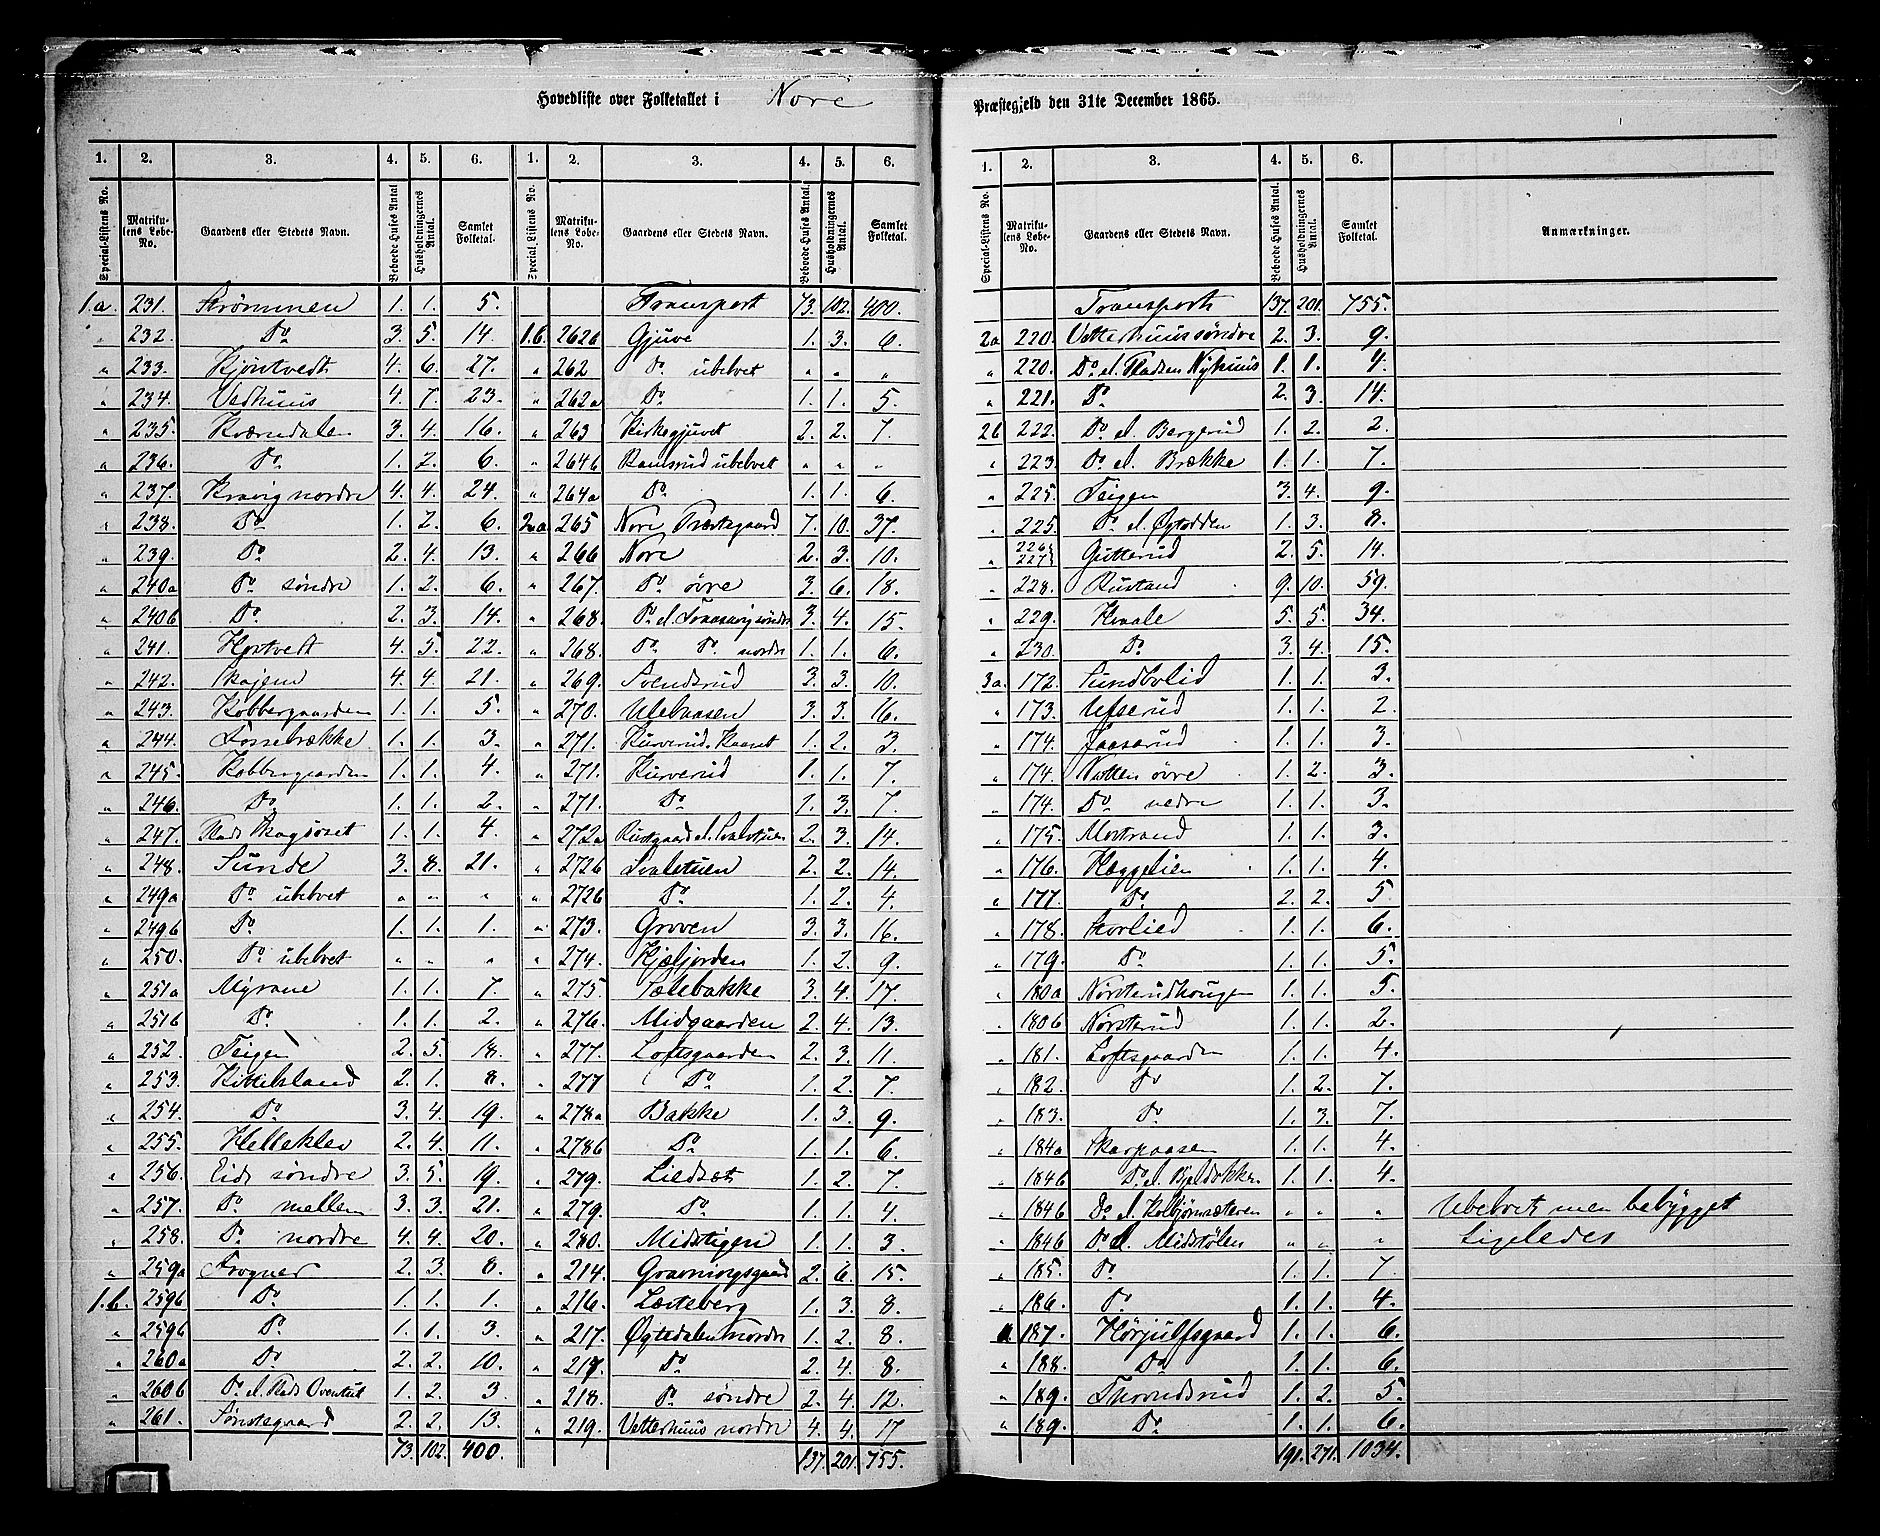 Hovedliste over Folketallet i Nore Præstegjeld den 31te December 1865.
1. 2. 3. 4. 5. 6.
Special-Listens No. Matrikulens Løbe-No. Gaardens eller Stedets Navn. Beboede Huses Antal Husholdningernes Antal. Samlet Folketal.
1.a. 231. Strømmen 1. 1. 5.
" 232. Do 3. 5. 14.
" 233. Kjøntvedt 4. 6. 27.
" 234. Vedhuus 4. 7. 23.
" 235. Kværndalen 3. 4. 16.
" 236. Do 1. 2. 6.
" 237. Kravig nordre 4. 4. 24.
" 238. Do 1. 2. 6.
" 239. Do 2. 4. 13.
" 240a Do søndre 1. 2. 6.
" 240b Do 2. 3. 14.
" 241. Hortvedt 4. 5. 22.
" 242. Skajem 4. 4. 21.
" 243. Kobbergaarden 1. 1. 5.
" 244. Fossebrække 1. 1. 3.
" 245. Kobbergaarden 1. 1. 4.
" 246. Do 1. 1. 2.
" 247. Plads Skagsoset 1. 1. 4.
" 248. Sunde 3. 8. 21.
" 249a Do ubebvet " " "
" 249b Do 1. 1. 1.
" 250. Do ubebvet " " "
" 251a Myrane 1. 1. 7.
" 251b Do 1. 1. 2.
" 252. Teigen 2. 5. 18.
" 253. Kittilsland 2. 1. 8.
" 254. Do 3. 4. 19.
" 255. Helleklev 2. 4. 11.
" 256. Eids søndre 3. 5. 19.
" 257. Do mellem 3. 3. 21.
" 258. Do nordre 4. 4. 20.
" 259a Frogner 2. 3. 8.
1.b. 259b Do 1. 1. 1.
" 259b Do 1. 1. 3.
" 260a Do 2. 2. 10.
" 260b Do el. Plads Oventut 1. 2. 3.
" 261. Sønstegaard 2. 2. 13.
73. 102. 400.
1. 2. 3. 4. 5. 6.
Special Listens No. Matrikulens Løbe-No. Gaardens eller Stedets Navn. Beboede Huses Antal. Husholdningernes Antal. Samlet Folketal.
Transport 73. 102. 400.
1.b. 262b Gjuve 1. 3. 6.
" 262 Do ubebvet " " "
" 262a Do 1. 1. 5.
" 263 Kirkegjuvet 2. 2. 7.
" 264b Ramsrud ubebvet " " "
" 264a Do 1. 1. 6.
2.a. 265 Nore Præstegaard 7. 10. 37.
" 266 Nore 2. 3. 10.
" 267. Do øvre 3. 6. 18.
" 268. Do el. Traaavig søndre 3. 4. 15.
" 268. Do Do nordre 1. 1. 6.
" 269. Svendsrud 3. 3. 10.
" 270. Ulevaasen 3. 3. 16.
" 271. Kurverud. Kaaset 1. 2. 3.
" 271. Kurverud 1. 1. 7.
" 271. Do 1. 3. 7.
" 272a Rustgaard el. Svaletuen 2. 3. 14.
" 272b Svaletuen 2. 2. 14.
" 272b Do 1. 2. 4.
" 273. Groven 3. 3. 16.
" 274. Kjæljorden 1. 2. 9.
" 275. Tælebakke 3. 4. 17.
" 276. Midgaarden 2. 4. 13.
" 277. Loftsgaarden 2. 3. 11.
" 277 Do 1. 2. 7.
" 278a Bakke 1. 3. 9.
" 278b Do 1. 1. 6.
" 279. Liedsæt 1. 2. 7.
" 279. Do 1. 1. 4.
" 280. Midstigen 1. 1. 3.
" 214. Gravningsgaard 2. 6. 15.
" 216. Læsteberg 1. 3. 8.
" 217. Øgtedalen nordre 1. 2. 8.
" 217. Do 2. 4. 8.
" 218. Do søndre 2. 4. 12.
" 219. Vetterhuus nordre 4. 4. 17
137. 201. 755.
1. 2. 3. 4. 5. 6.
Special-Listens No. Matrikulens Løbe-No. Gaardens eller Stedets Navn. Beboede Huses Antal. Husholdningernes Antal. Samlet Folketal. Anmærkninger.
Transport 137. 201. 755.
2a 220. Vetterhuus søndre 2. 3. 9.
" 220. Do el. Pladsen Nyhuus 1. 1. 4.
" 221. Do 2. 3. 14.
2b 222. Do el. Bergerud 1. 2. 2.
" 223. Do el. Brække 1. 1. 7.
" 225. Teigen 3. 4. 9.
" 225. Do el. Øgtodden 1. 3. 8.
" 226 227 Gutterud 2. 5. 14.
" 228. Rustand 9. 10. 59.
" 229. Kvale 5. 5. 34.
" 230. Do 3. 4. 15.
3a. 172. Sundbølid 1. 1. 3.
" 173. Ufserud 1. 1. 2.
" 174. Jaasarud 1. 1. 3.
" 174. Natten øvre 1. 2. 3.
" 174. Do nedre 1. 1. 3.
" 175. Mortrand 1. 1. 3.
" 176. Heggelien 1. 1. 4.
" 177. Do 2. 2. 5
" 178. Skorlied 1. 1. 6.
" 179. Do 1. 1. 5.
" 180a Nørsterudhougen 1. 1. 5.
" 180b Nørsterud 1. 1. 2.
" 181. Loftsgaarden 1. 1. 4.
" 182. Do 1. 2. 7.
" 183. Do 1. 3. 7.
" 184a Skarpaasen 1. 1. 4.
" 184b Do el. Bjeldokken 1. 1. 4.
" 184b Do el. Kolbjørnsæteren " " " Ubebvet men bebygget
" 184b Do el. Midstølen " " " Ligeledes
" 185. Do 1. 1. 7
" 186. Do 1. 1. 4.
" 187. Hørjulfsgaard 1. 1. 6.
" 188. Do 1. 1. 6.
" 189. Thorudsrud 1. 2. 5.
" 189. Do 1. 1. 6.
191. 271. 1034.